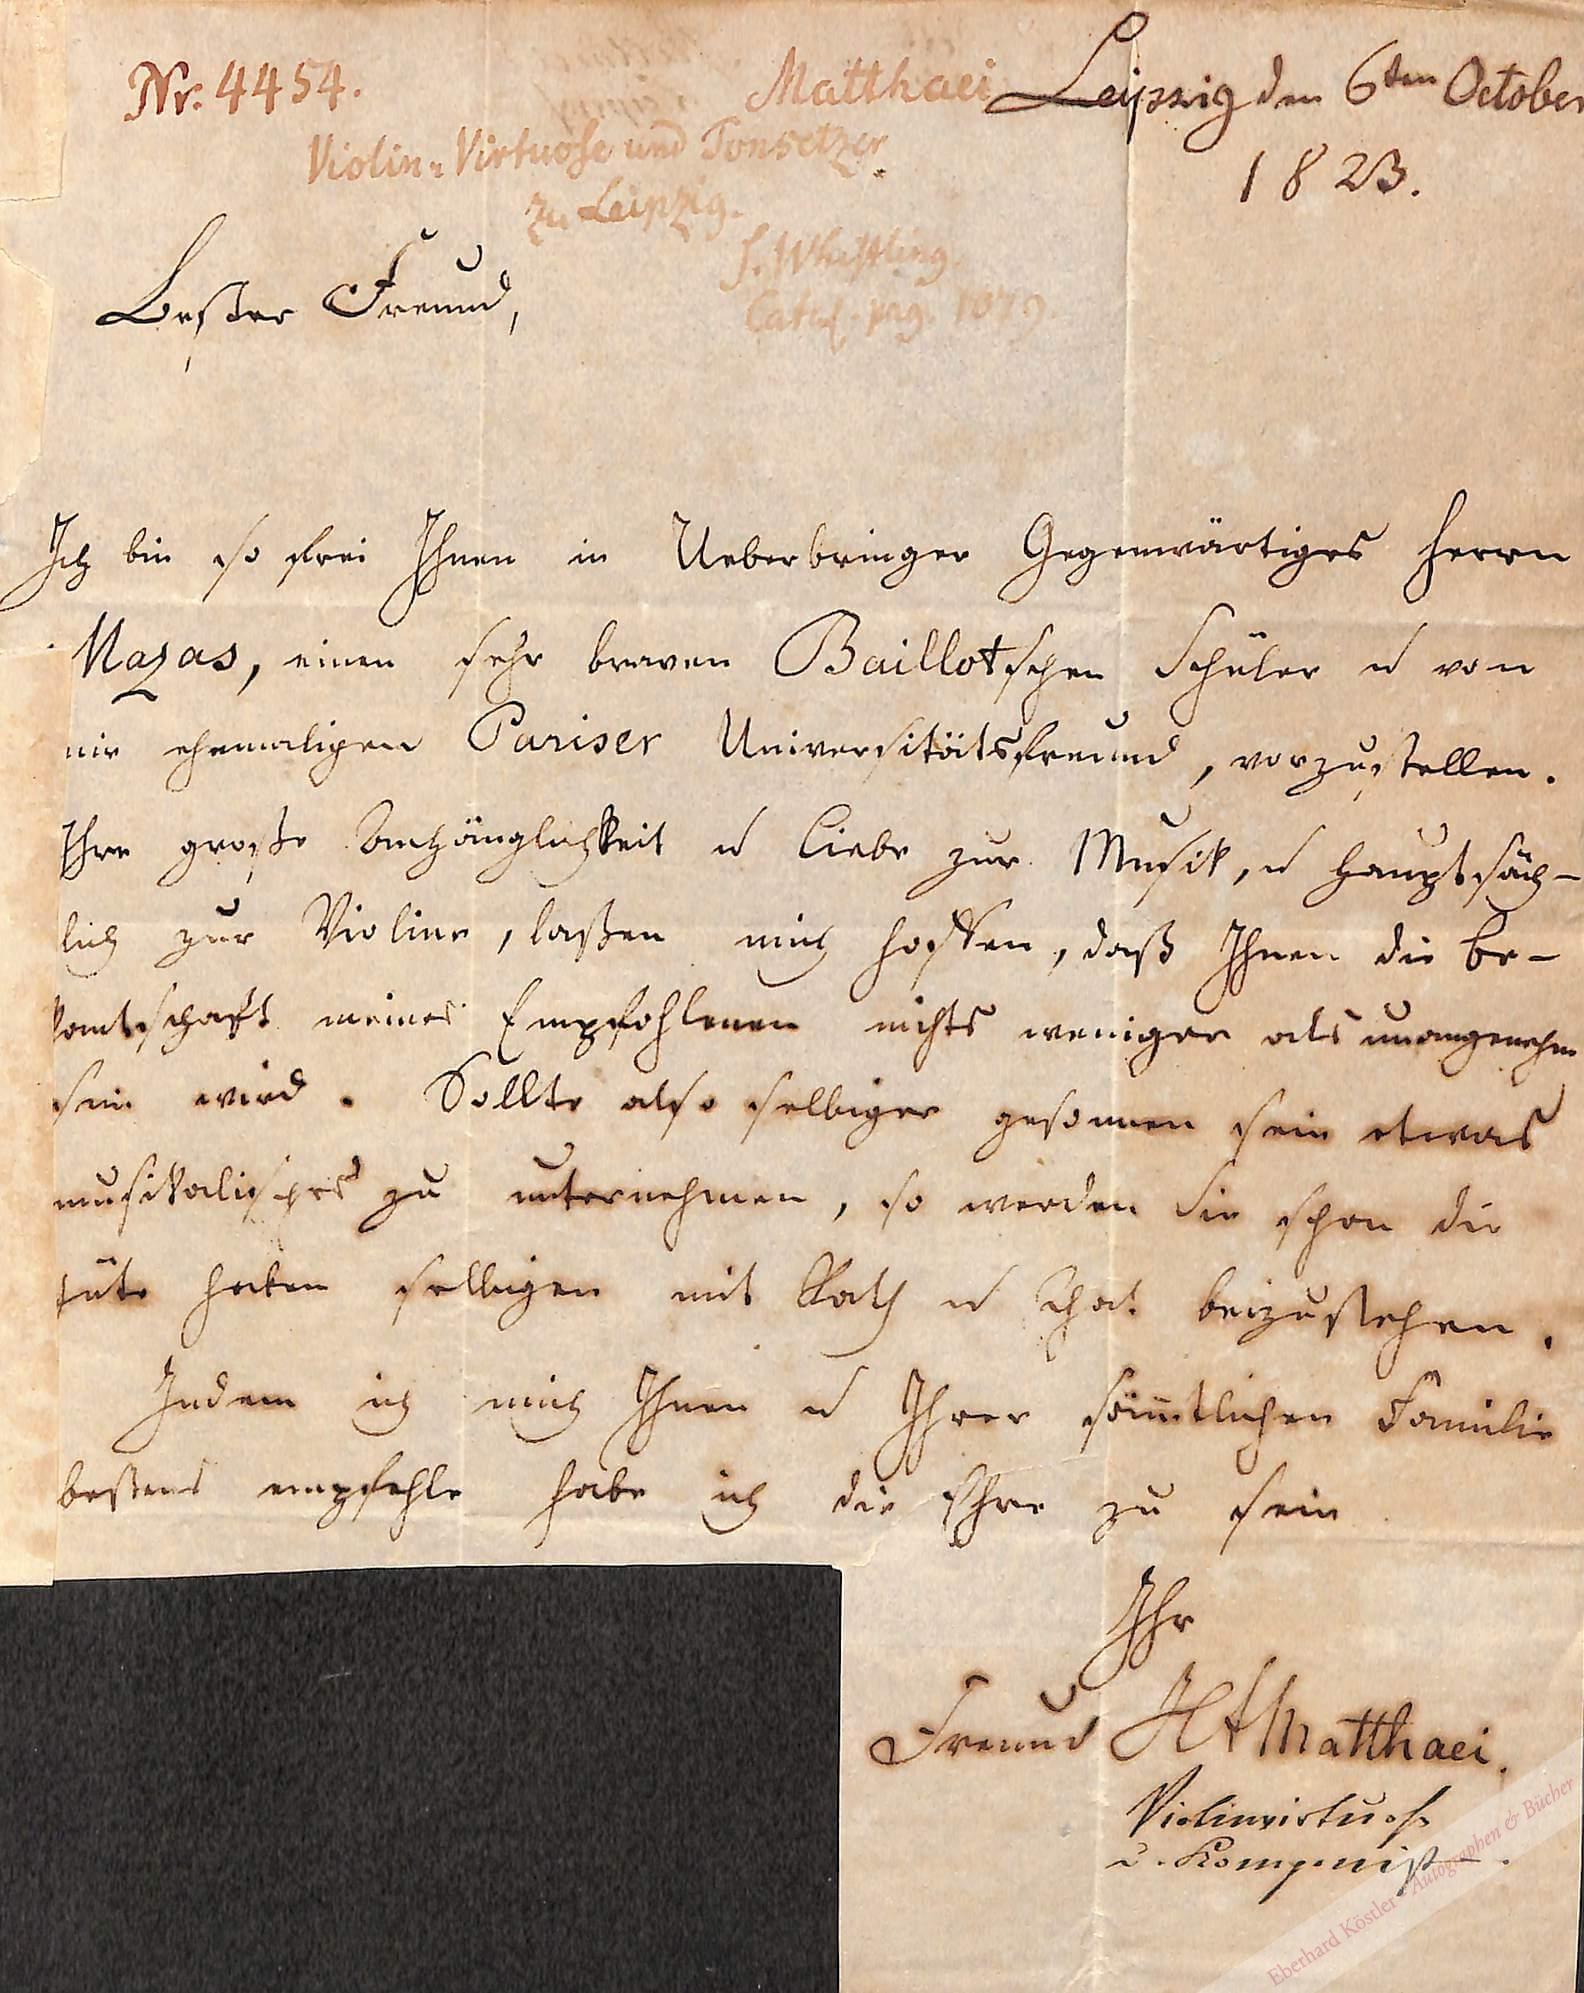 Nr. 4454.
Matthaei
Leipzig den 6ten October
1823.
Violin-Virtuose und Tonsetzer
zu Leipzig.
s. Whistling
Catal. pag. 1079.
Bester Freund,
Ich bin so frei Ihnen in Ueberbringer Gegenwärtiges Herrn
Mazas, einen sehr braven Baillotschen Schüler u von
mir ehemaligen Pariser Universitätsfreund, vorzustellen.
Ihre große Anhänglichkeit u Liebe zur Musik, u hauptsäch-
lich zur Violine, laßen mich hoffen, daß Ihnen die Be-
kantschaft meines Empfohlenen nichts weniger als unangenehm
sein wird. Sollte also selbiger gesonnen sein etwas
musikalisches zu unternehmen, so werden Sie schon die
Güte haben selbigen mit Rath u That beizustehen.
Indem ich mich Ihnen u Ihrer sämmtlichen Familie
bestens empfehle habe ich die Ehre zu sein
Ihr
Freund HAMatthaei.
Violinvirtuose
u. Komponist.
Eberhard Köstler - Autographen & Bücher